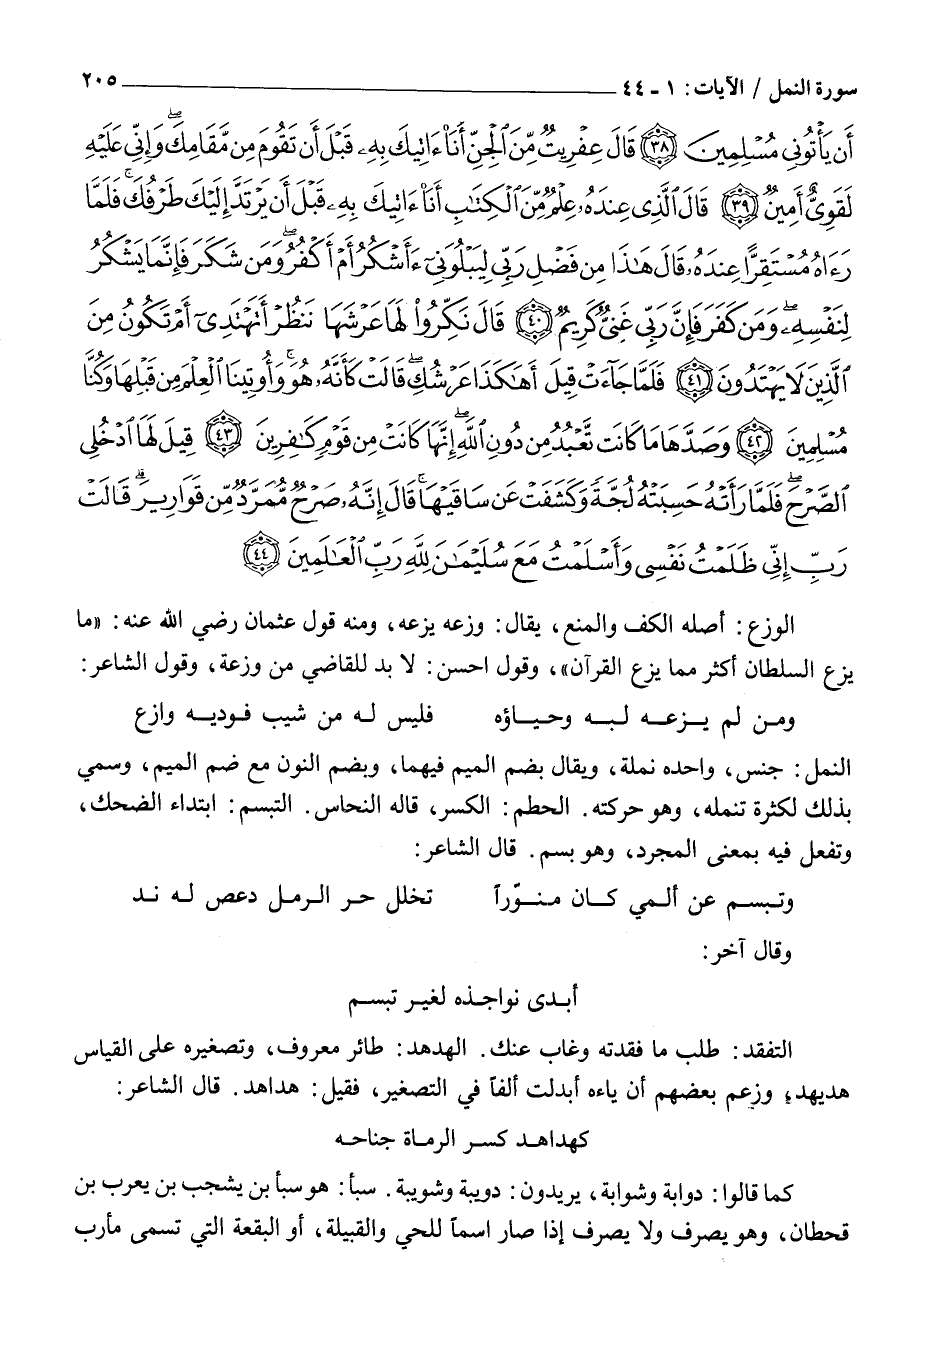 سورة النمل / الآيات: ١ - ٤٤ ٢٠٥
أَن يَأْتُونِي مُسْلِمِينَ ﴿٣٨﴾ قَالَ عِفْرِيتٌ مِّنَ ٱلْجِنِّ أَنَا۠ ءَاتِيكَ بِهِۦ قَبْلَ أَن تَقُومَ مِن مَّقَامِكَ ۖ وَإِنِّي عَلَيْهِ
لَقَوِىٌّ أَمِينٌ ﴿٣٩﴾ قَالَ ٱلَّذِى عِندَهُۥ عِلْمٌ مِّنَ ٱلْكِتَٰبِ أَنَا۠ ءَاتِيكَ بِهِۦ قَبْلَ أَن يَرْتَدَّ إِلَيْكَ طَرْفُكَ ۚ فَلَمَّا
رَءَاهُ مُسْتَقِرًّا عِندَهُۥ قَالَ هَٰذَا مِن فَضْلِ رَبِّى لِيَبْلُوَنِىٓ ءَأَشْكُرُ أَمْ أَكْفُرُ ۖ وَمَن شَكَرَ فَإِنَّمَا يَشْكُرُ
لِنَفْسِهِۦ ۖ وَمَن كَفَرَ فَإِنَّ رَبِّى غَنِىٌّ كَرِيمٌ ﴿٤٠﴾ قَالَ نَكِّرُوا۟ لَهَا عَرْشَهَا نَنظُرْ أَتَهْتَدِىٓ أَمْ تَكُونُ مِنَ
ٱلَّذِينَ لَا يَهْتَدُونَ ﴿٤١﴾ فَلَمَّا جَآءَتْ قِيلَ أَهَٰكَذَا عَرْشُكِ ۖ قَالَتْ كَأَنَّهُۥ هُوَ ۚ وَأُوتِينَا ٱلْعِلْمَ مِن قَبْلِهَا وَكُنَّا
مُسْلِمِينَ ﴿٤٢﴾ وَصَدَّهَا مَا كَانَت تَّعْبُدُ مِن دُونِ ٱللَّهِ ۖ إِنَّهَا كَانَتْ مِن قَوْمٍ كَٰفِرِينَ ﴿٤٣﴾ قِيلَ لَهَا ٱدْخُلِى
ٱلصَّرْحَ ۖ فَلَمَّا رَأَتْهُ حَسِبَتْهُ لُجَّةً وَكَشَفَتْ عَن سَاقَيْهَا ۚ قَالَ إِنَّهُۥ صَرْحٌ مُّمَرَّدٌ مِّن قَوَارِيرَ ۗ قَالَتْ
رَبِّ إِنِّى ظَلَمْتُ نَفْسِى وَأَسْلَمْتُ مَعَ سُلَيْمَٰنَ لِلَّهِ رَبِّ ٱلْعَٰلَمِينَ ﴿٤٤﴾
الوزع: أصله الكف والمنع، يقال: وزعه يزعه، ومنه قول عثمان رضي الله عنه: «ما
يزع السلطان أكثر مما يزع القرآن»، وقول احسن: لا بد للقاضي من وزعة، وقول الشاعر:
ومن لم يزعه لبه وحياؤه فليس له من شيب فوديه وازع
النمل: جنس، واحده نملة، ويقال بضم الميم فيهما، وبضم النون مع ضم الميم، وسمي
بذلك لكثرة تنمله، وهو حركته. الحطم: الكسر، قاله النحاس. التبسم: ابتداء الضحك،
وتفعل فيه بمعنى المجرد، وهو بسم. قال الشاعر:
وتبسم عن ألمي كان منوّراً تخلل حر الرمل دعص له ند
وقال آخر:
أبدى نواجذه لغير تبسم
التفقد: طلب ما فقدته وغاب عنك. الهدهد: طائر معروف، وتصغيره على القياس
هديهد، وزعم بعضهم أن ياءه أبدلت ألفاً في التصغير، فقيل: هداهد. قال الشاعر:
كهداهد كسر الرماة جناحه
كما قالوا: دوابة وشوابة، يريدون: دويبة وشويبة. سبأ: هو سبأ بن يشجب بن يعرب بن
قحطان، وهو يصرف ولا يصرف إذا صار اسماً للحي والقبيلة، أو البقعة التي تسمى مأرب